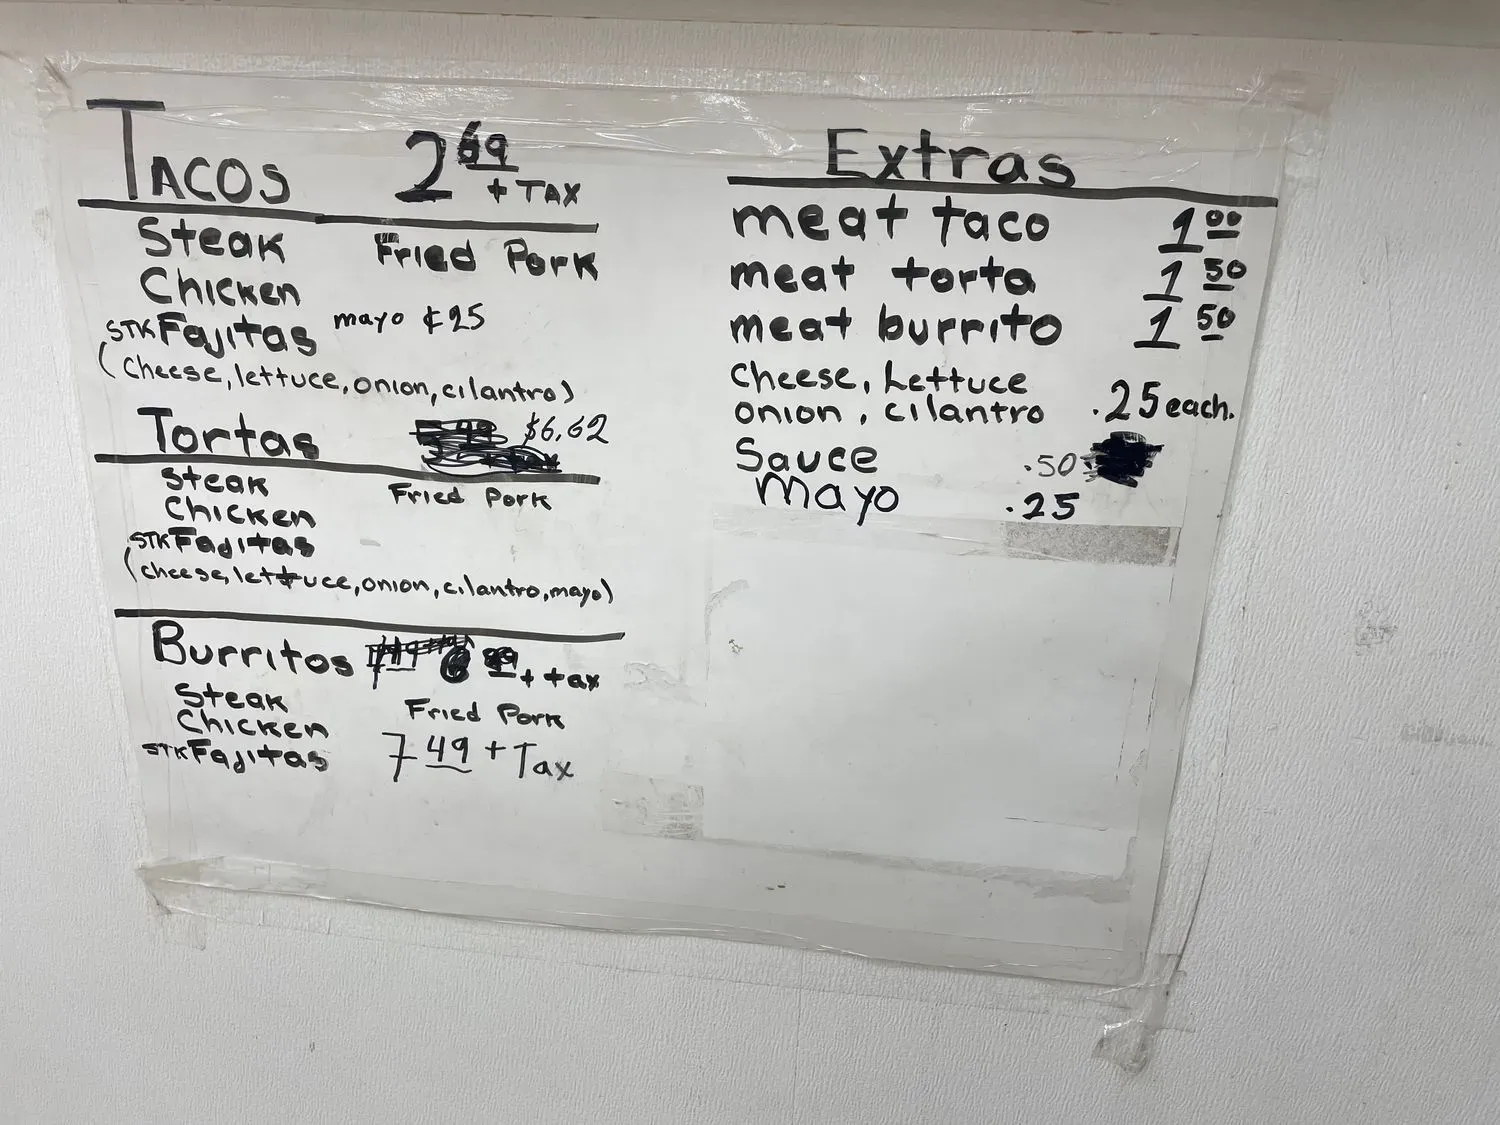 TACOS 2 69 + TAX
Steak Fried Pork
Chicken
STK Fajitas mayo ¢25
(cheese, lettuce, onion, cilantro)
Tortas $6.62
Steak Fried Pork
Chicken
STK Fajitas
(cheese, lettuce, onion, cilantro, mayo)
Burritos + tax
Steak Fried Pork
Chicken
STK Fajitas 7 49 + Tax
Extras
meat taco 1 00
meat torta 1 50
meat burrito 1 50
Cheese, Lettuce
onion, cilantro .25 each.
Sauce .50
mayo .25